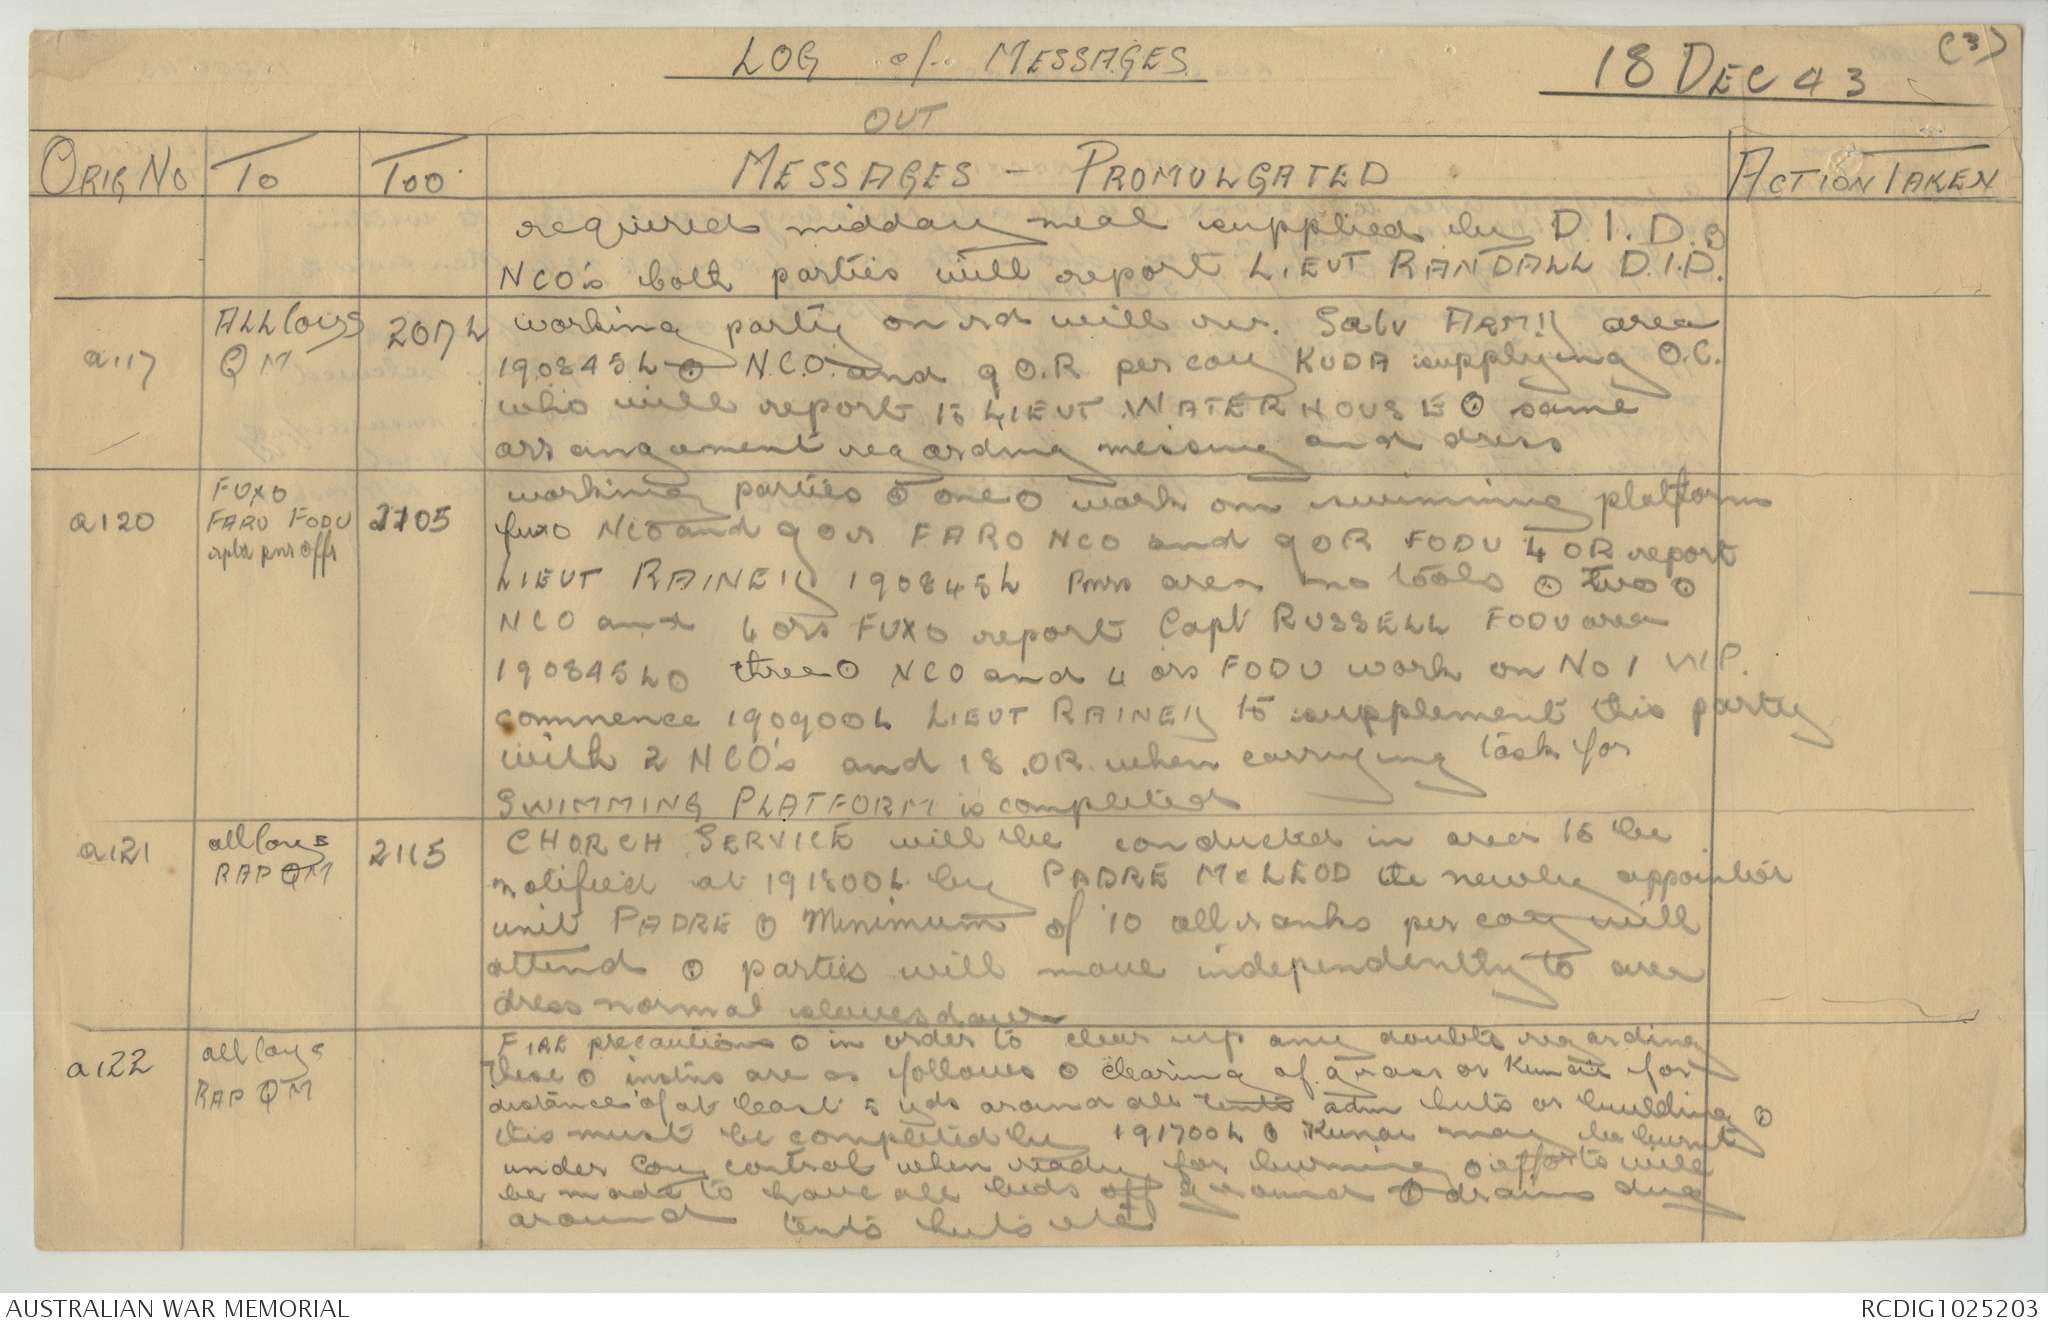 (3)
LOG of MESSAGES
18 DEC 43
OUT
ORIG No To Too MESSAGES - PROMULGATED ACTION TAKEN
required midday meal supplied by D.I.D.
NCO's both parties will report LIEUT RANDALL D.I.D.
a117 ALL Coys QM 2017L working party on rd will rv. Salv ARMY area
190845L ⊙ N.C.O. and 9 O.R per coy KUDA supplying O.C.
who will report to LIEUT WATERHOUSE ⊙ same
arrangement regarding messing and dress
a120 FUXO FARO FODU rptd pnr Offr 2105 working parties ⊙ one ⊙ work on swimming platform
fuxo NCO and 9 ors FARO NCO and 9 OR FODU 4 OR report
LIEUT RAINEY 190845L Pnrs area no tools ⊙ two ⊙
NCO and 4 ors FUXO report Capt RUSSELL FODU area
190845L ⊙ three ⊙ NCO and 4 ors FODU work on No 1 W.P.
commence 190900L LIEUT RAINEY to supplement this party
with 2 NCO's and 18 .OR. when carrying task for
SWIMMING PLATFORM is completed
a121 all Coys RAP QM 2115 CHURCH SERVICE will be conducted in area to be
notified at 191800L by PADRE McLEOD the newly appointed
unit PADRE ⊙ Minimum of 10 all ranks per coy will
attend ⊙ parties will move independently to area
dress normal sleeves down
a122 all Coys RAP QM FIRE precautions ⊙ in order to clear up any doubts regarding
these ⊙ instns are as follows ⊙ clearing of grass or Kunai for
distances of at least 5 yds around all tents adm huts or building ⊙
this must be completed by 191700L ⊙ Kunai may be burnt
under Coy control when ready for burning ⊙ efforts will
be made to have all beds off ground ⊙ drains dug
around tents huts etc
AUSTRALIAN WAR MEMORIAL
RCDIG1025203